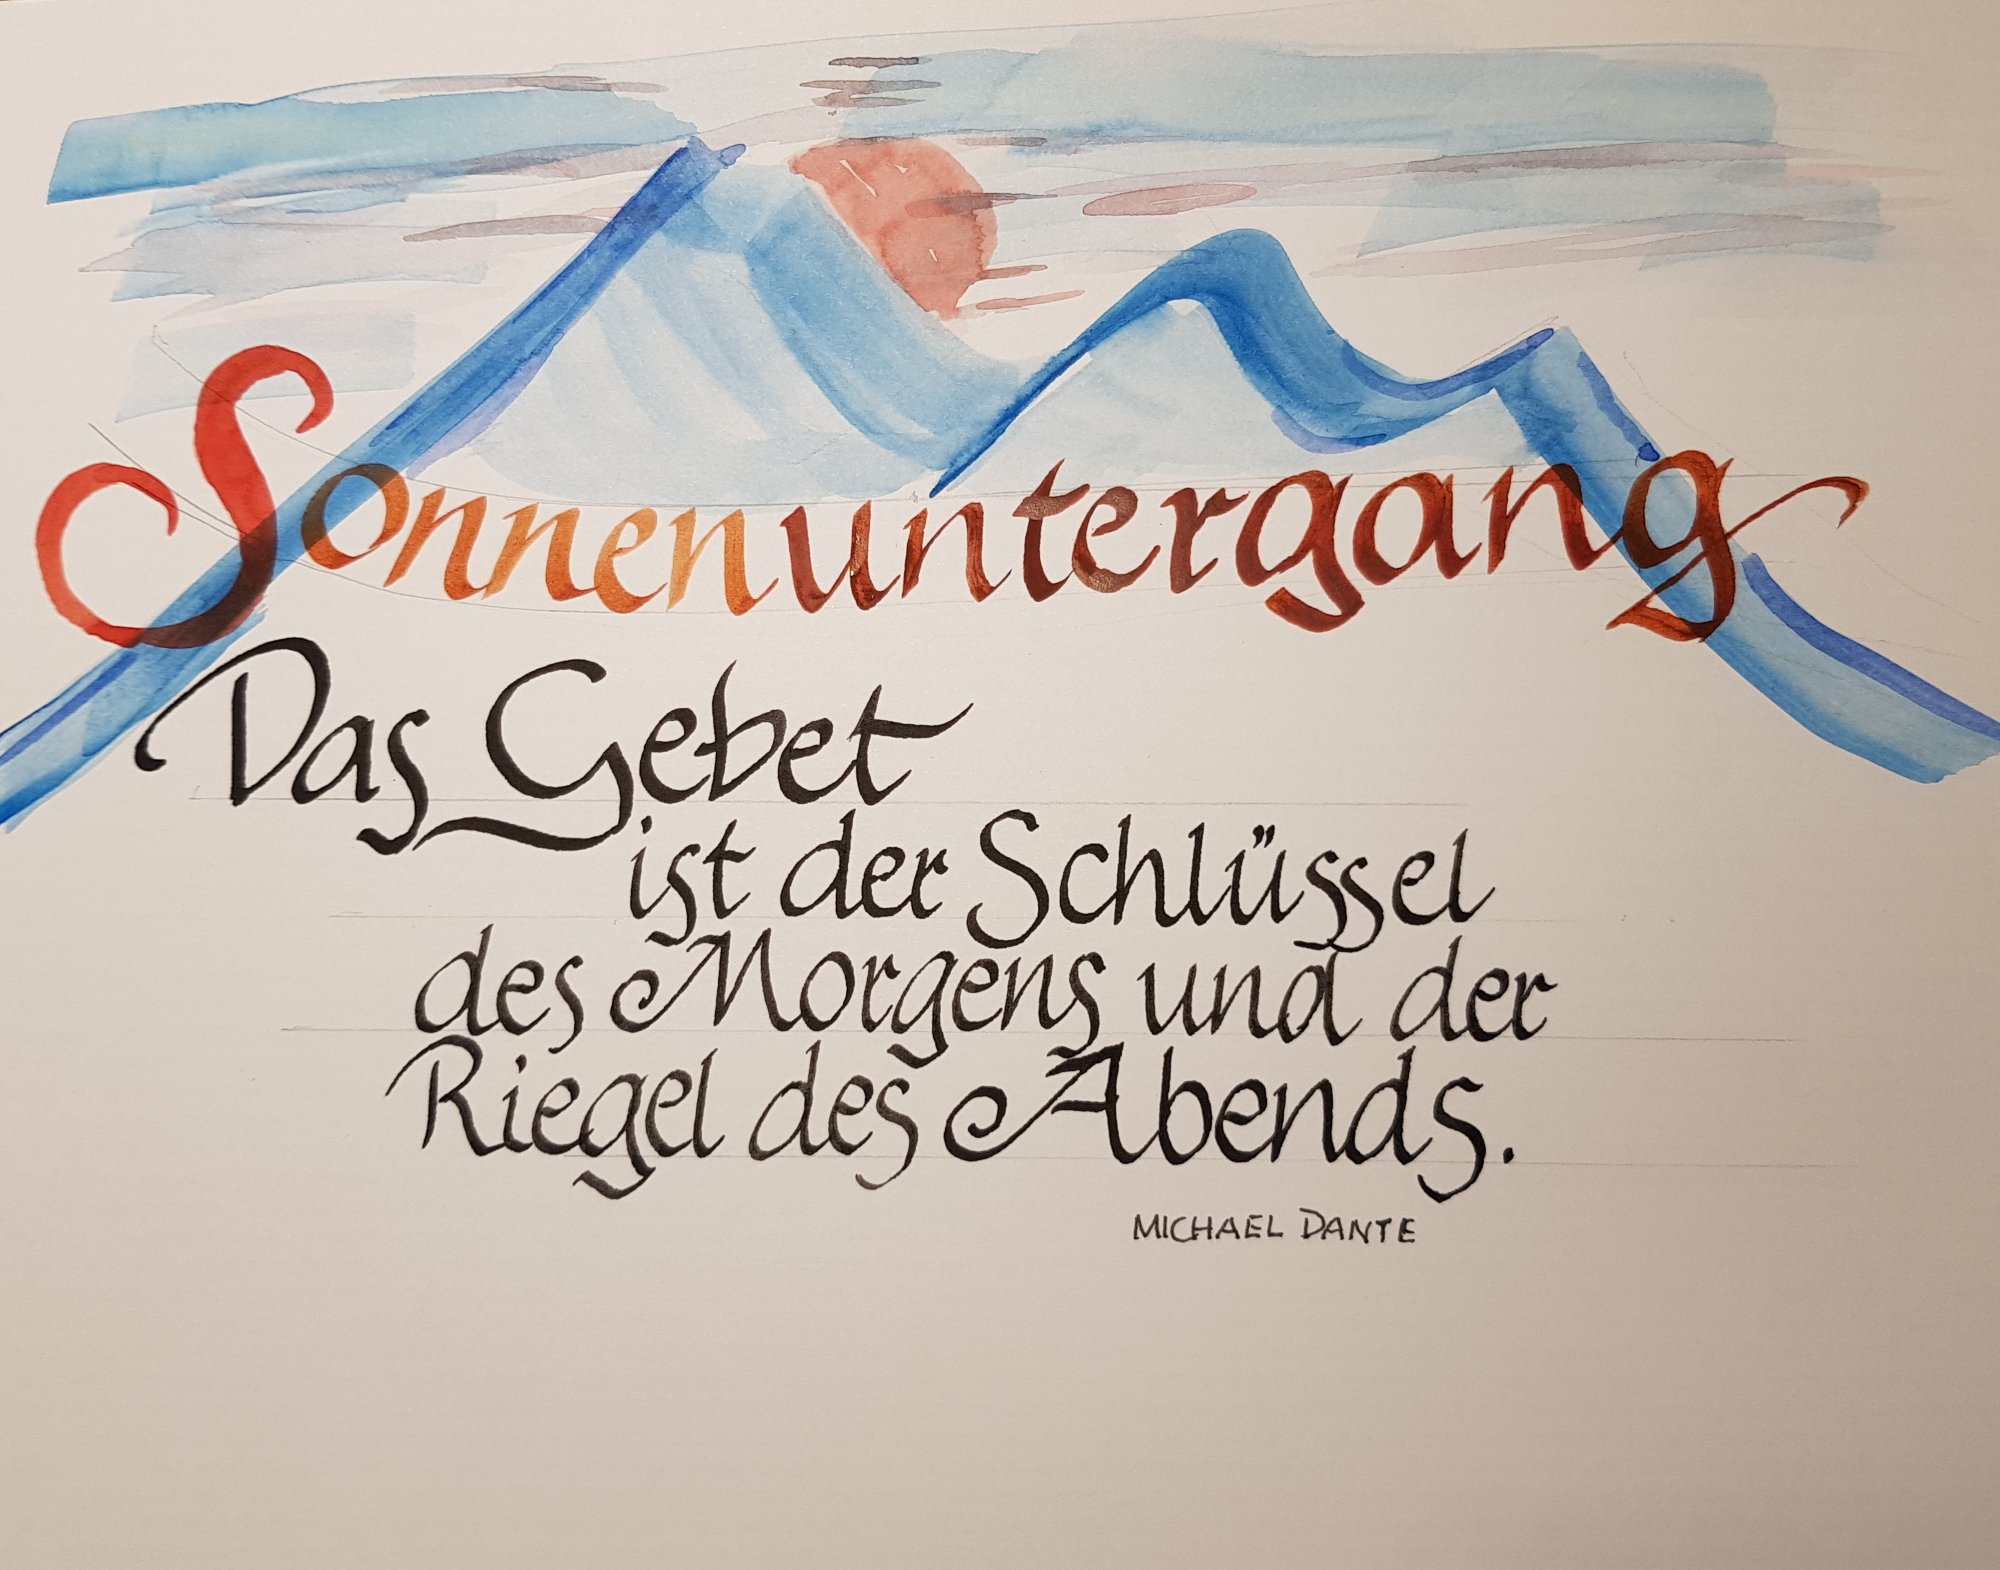 Sonnenuntergang
Das Gebet
ist der Schlüssel
des Morgens und der
Riegel des Abends.
MICHAEL DANTE